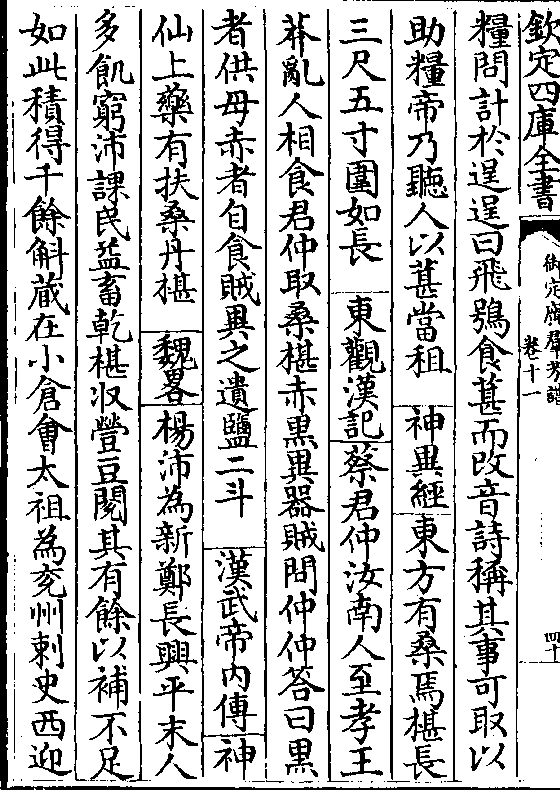 欽定四庫全書
御定廣羣芳譜
卷十一
四十
糧問計於逞逞曰飛鴞食葚而改音詩稱其事可取以
助糧帝乃聽人以葚當租 神異經 東方有桑焉椹長
三尺五寸圍如長 東觀漢記 蔡君仲汝南人至孝王
莽亂人相食君仲取桑椹赤黑異器賊問仲仲答曰黑
者供母赤者自食賊異之遺鹽二斗 漢武帝内傳 神
仙上藥有扶桑丹椹 魏畧 楊沛為新鄭長興平末人
多飢窮沛課民益畜乾椹收䝁豆閱其有餘以補不足
如此積得千餘斛藏在小倉會太祖為兖州刺史西迎